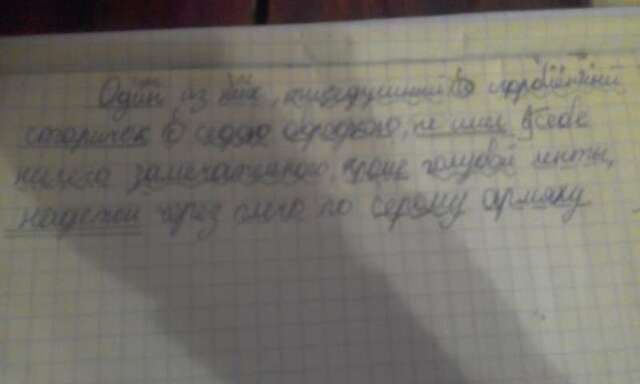 Один из них, тщедушный и сгорбленный
старичок с седою бородкою, не имел в себе
ничего замечательного, кроме голубой ленты,
надетой чрез плечо по серому армяку